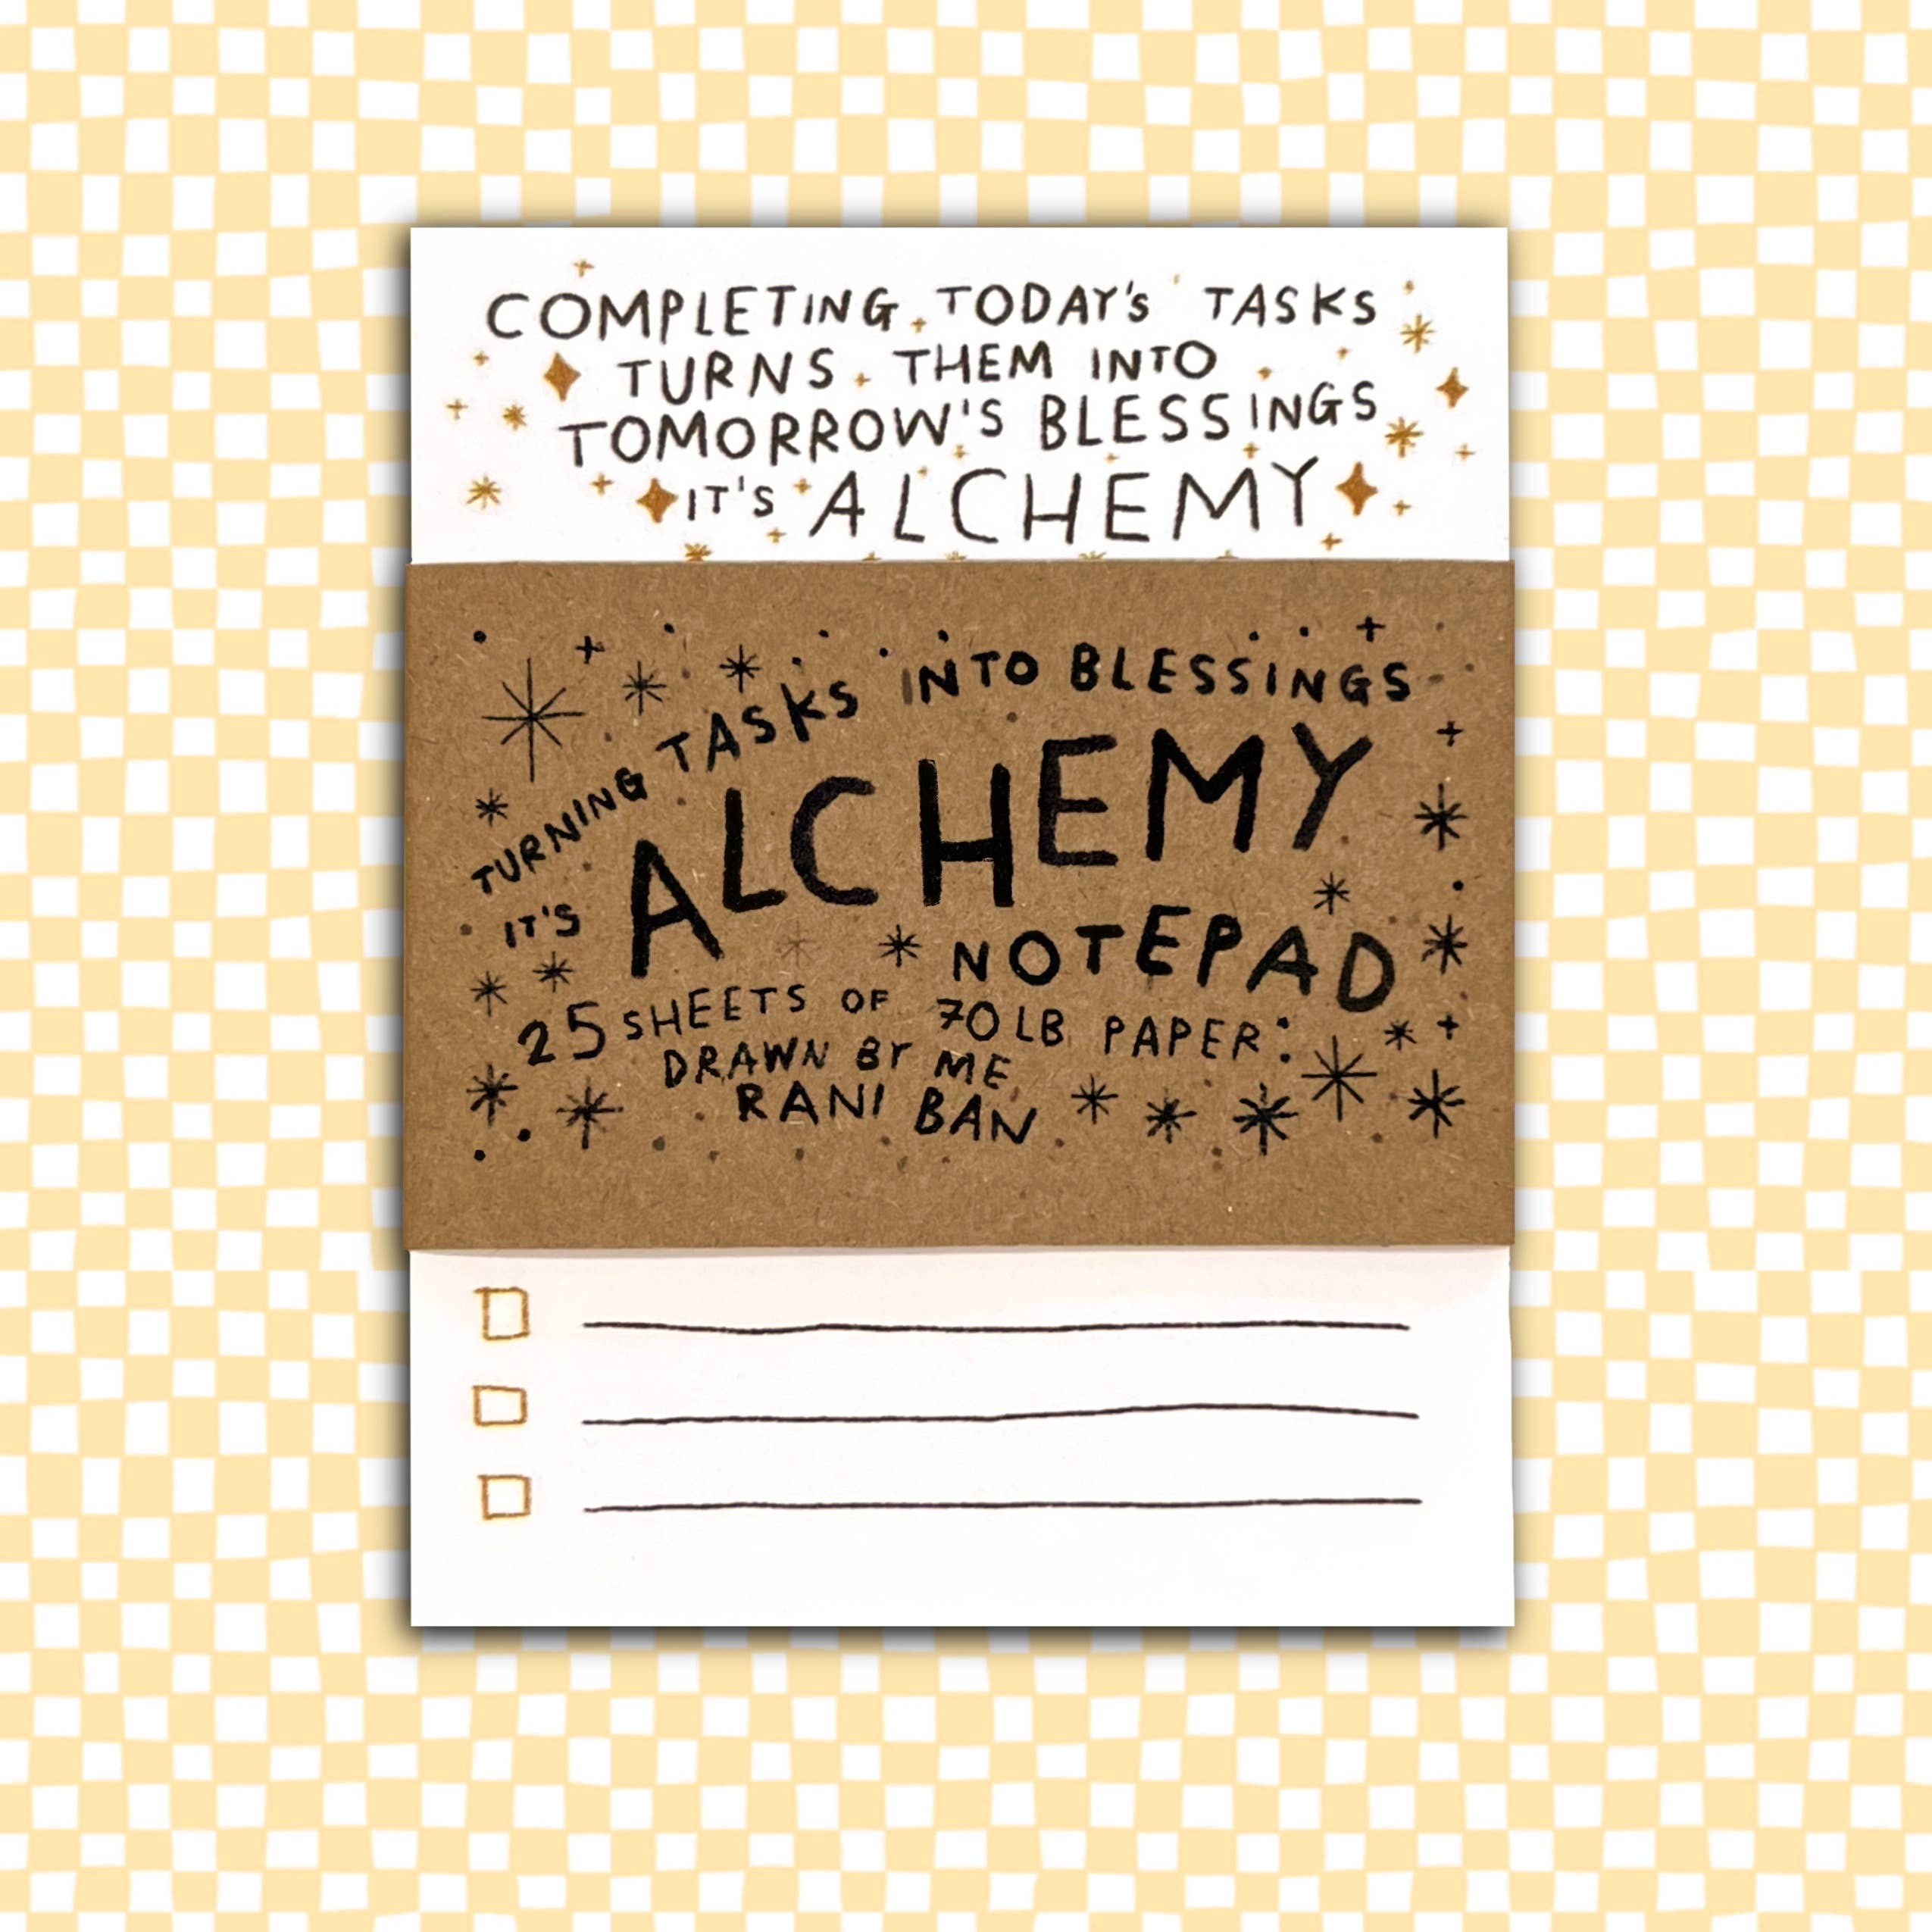 COMPLETING TODAY'S TASKS
TURNS THEM INTO
TOMORROW'S BLESSINGS
IT'S ALCHEMY
TURNING TASKS INTO BLESSINGS
IT'S ALCHEMY
NOTEPAD
25 SHEETS OF 70LB PAPER:
DRAWN BY ME
RANI BAN